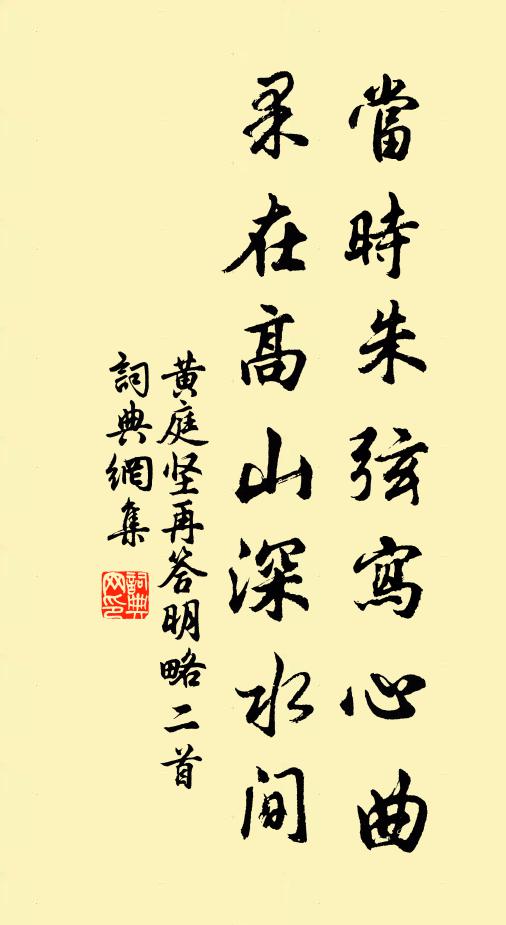 當時朱弦寫心曲
果在高山深水间
黄庭坚再答明略二首
詞典網集
詞典网印